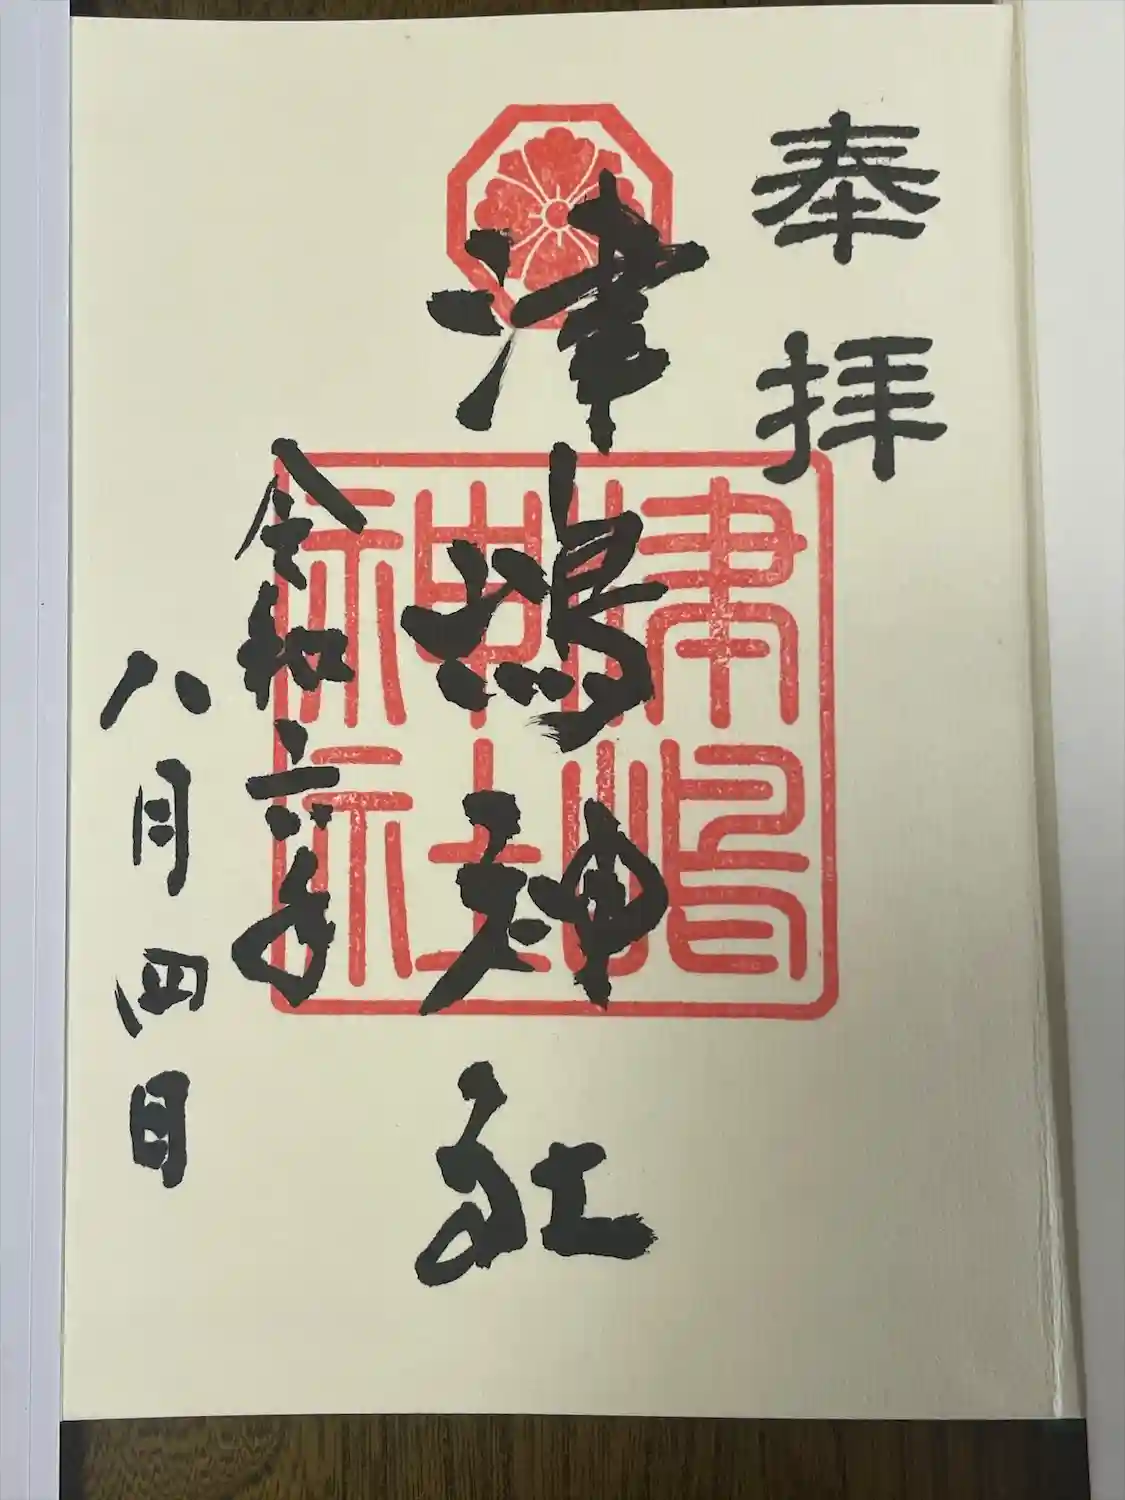 奉拝
津嶋神社
津嶋神社
令和六年
八月四日